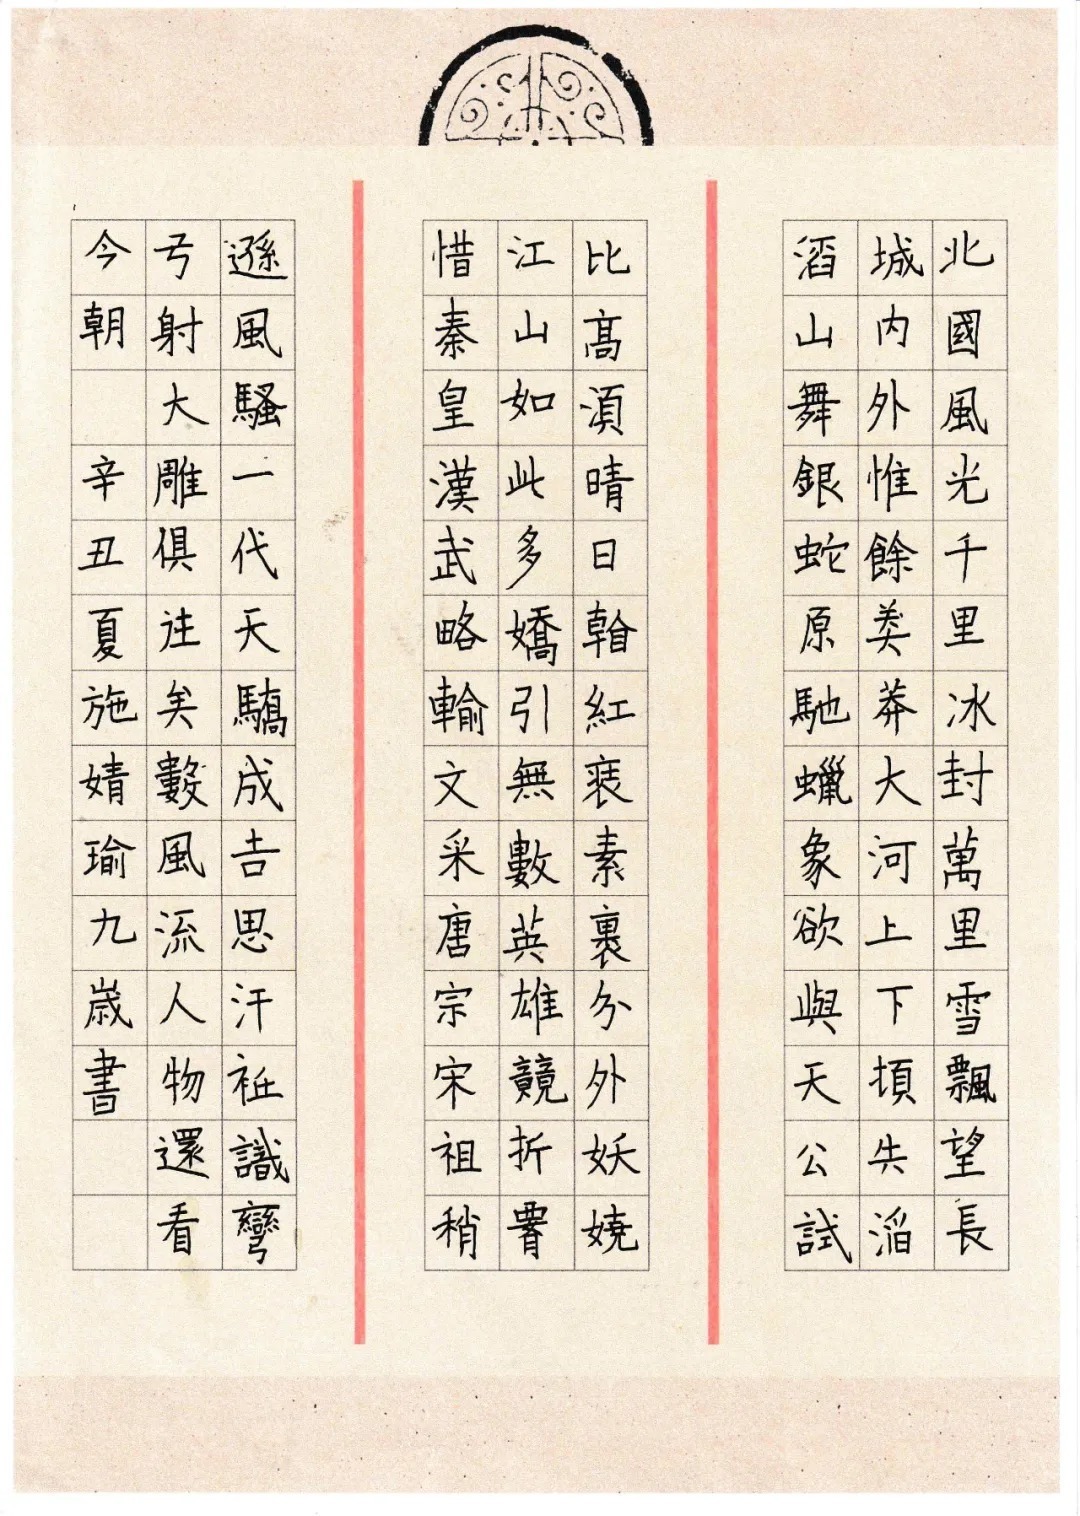 北國風光千里冰封萬里雪飄望長
城内外惟餘莽莽大河上下頓失滔
滔山舞銀蛇原馳蠟象欲與天公試
比高湏晴日看紅裝素裹分外妖嬈
江山如此多嬌引無數英雄競折腰
惜秦皇漢武略輸文采唐宗宋祖稍
遜風騷一代天驕成吉思汗祗識彎
弓射大雕俱往矣數風流人物還看
今朝 辛丑夏施婧瑜九歲書